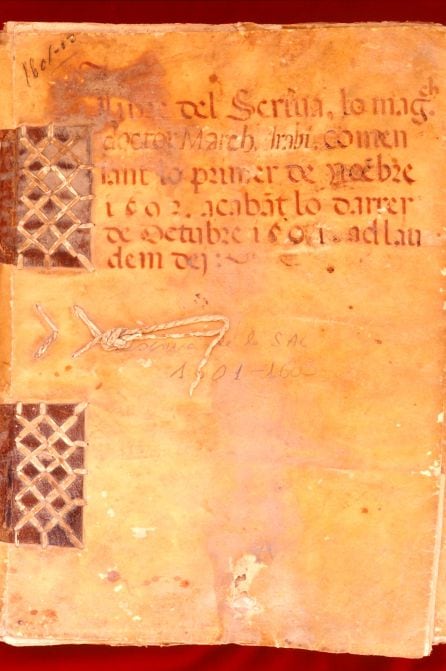 1601-02
Llibre del Scriva, lo magch
doctor March. Arabi. comen
sant lo primer de noẽbre
1602. acabãt lo darrer
de Octubre 1601. ad lau
dem dej
de la SAC
1601-160